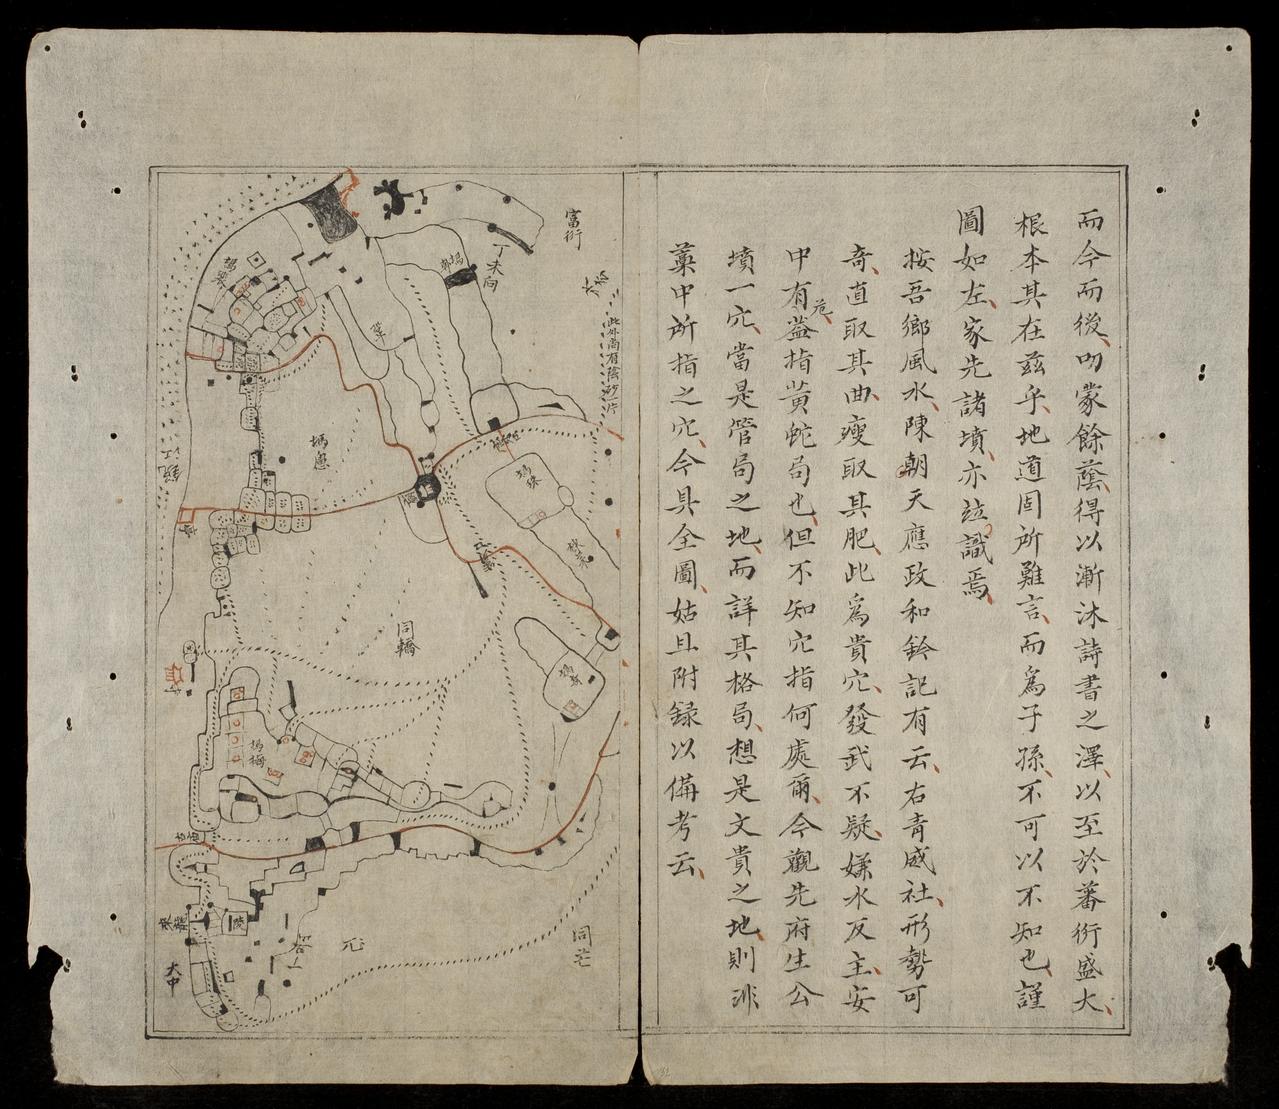 而今而後叨蒙餘蔭得以漸沐詩書之澤以至於蕃衍盛大
根本其在茲乎地道固所難言而爲子孫不可以不知也謹
圖如左家先諸墳亦竝識焉
按吾鄉風水陳朝天應政和鈐記有云右青威社形勢可
奇直取其曲瘦取其肥此爲貴穴發武不疑嫌水反主安
中有益指黃蛇局也但不知穴指何處爾今觀先府生公
墳一穴當是管局之地而詳其格局想是文貴之地則非
藁中所指之穴今具全圖姑且附録以備考云
富衍
丁未向
此外尚有陰砂一片
同橋
同芒
大中